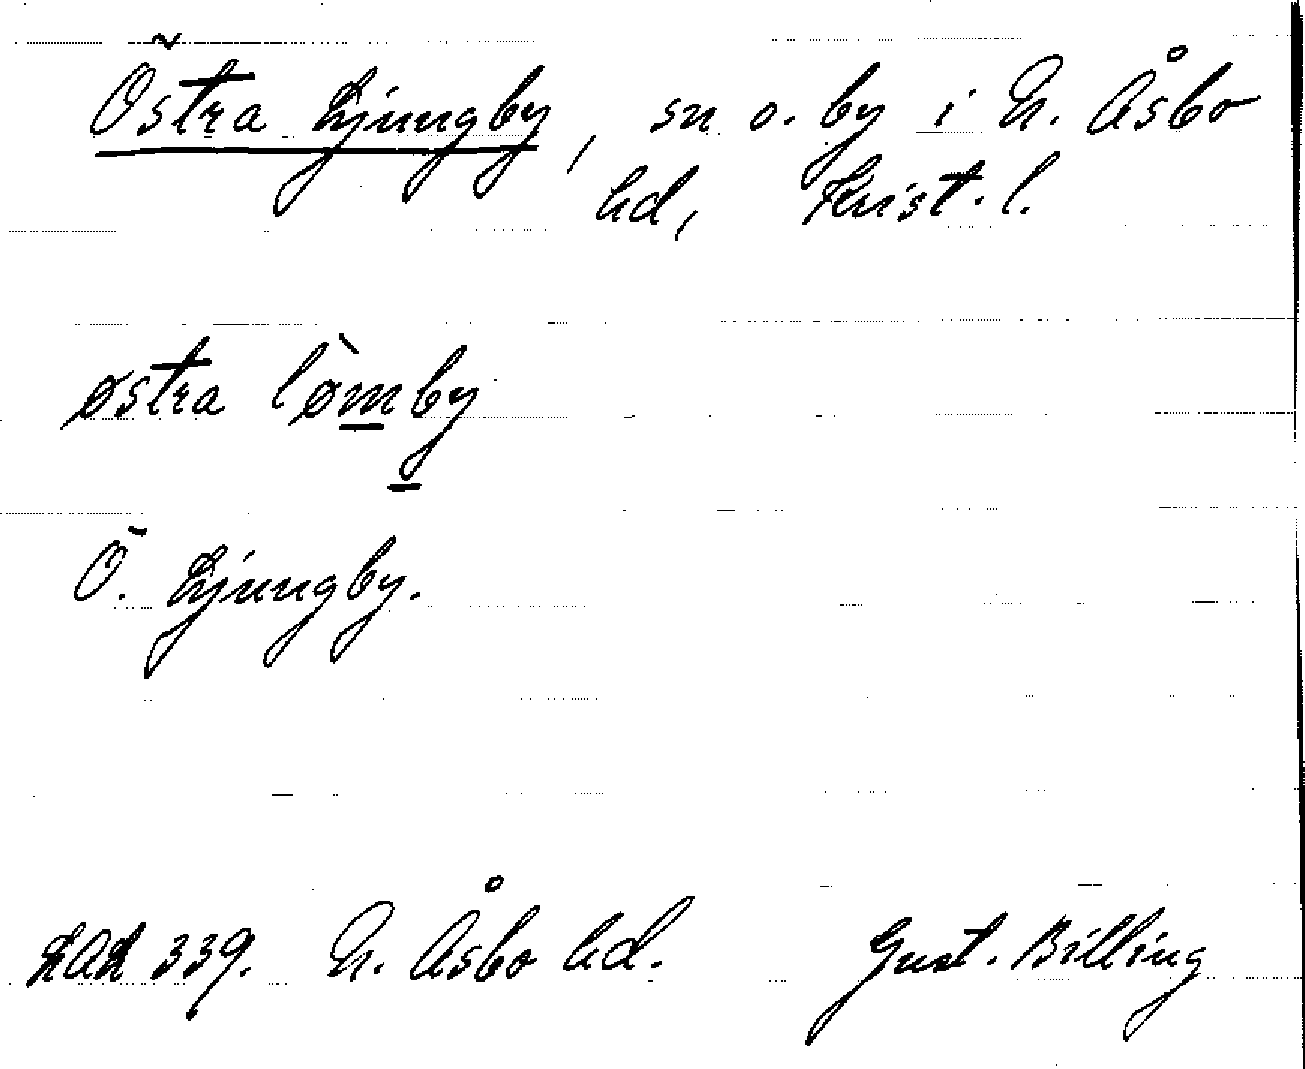 Östra Ljungby, sn o. by i N. Åsbo
hd, Krist. l.
østra lø̀mby
Ö. Ljungby.
LAL 339. N. Åsbo hd. Gust. Billing